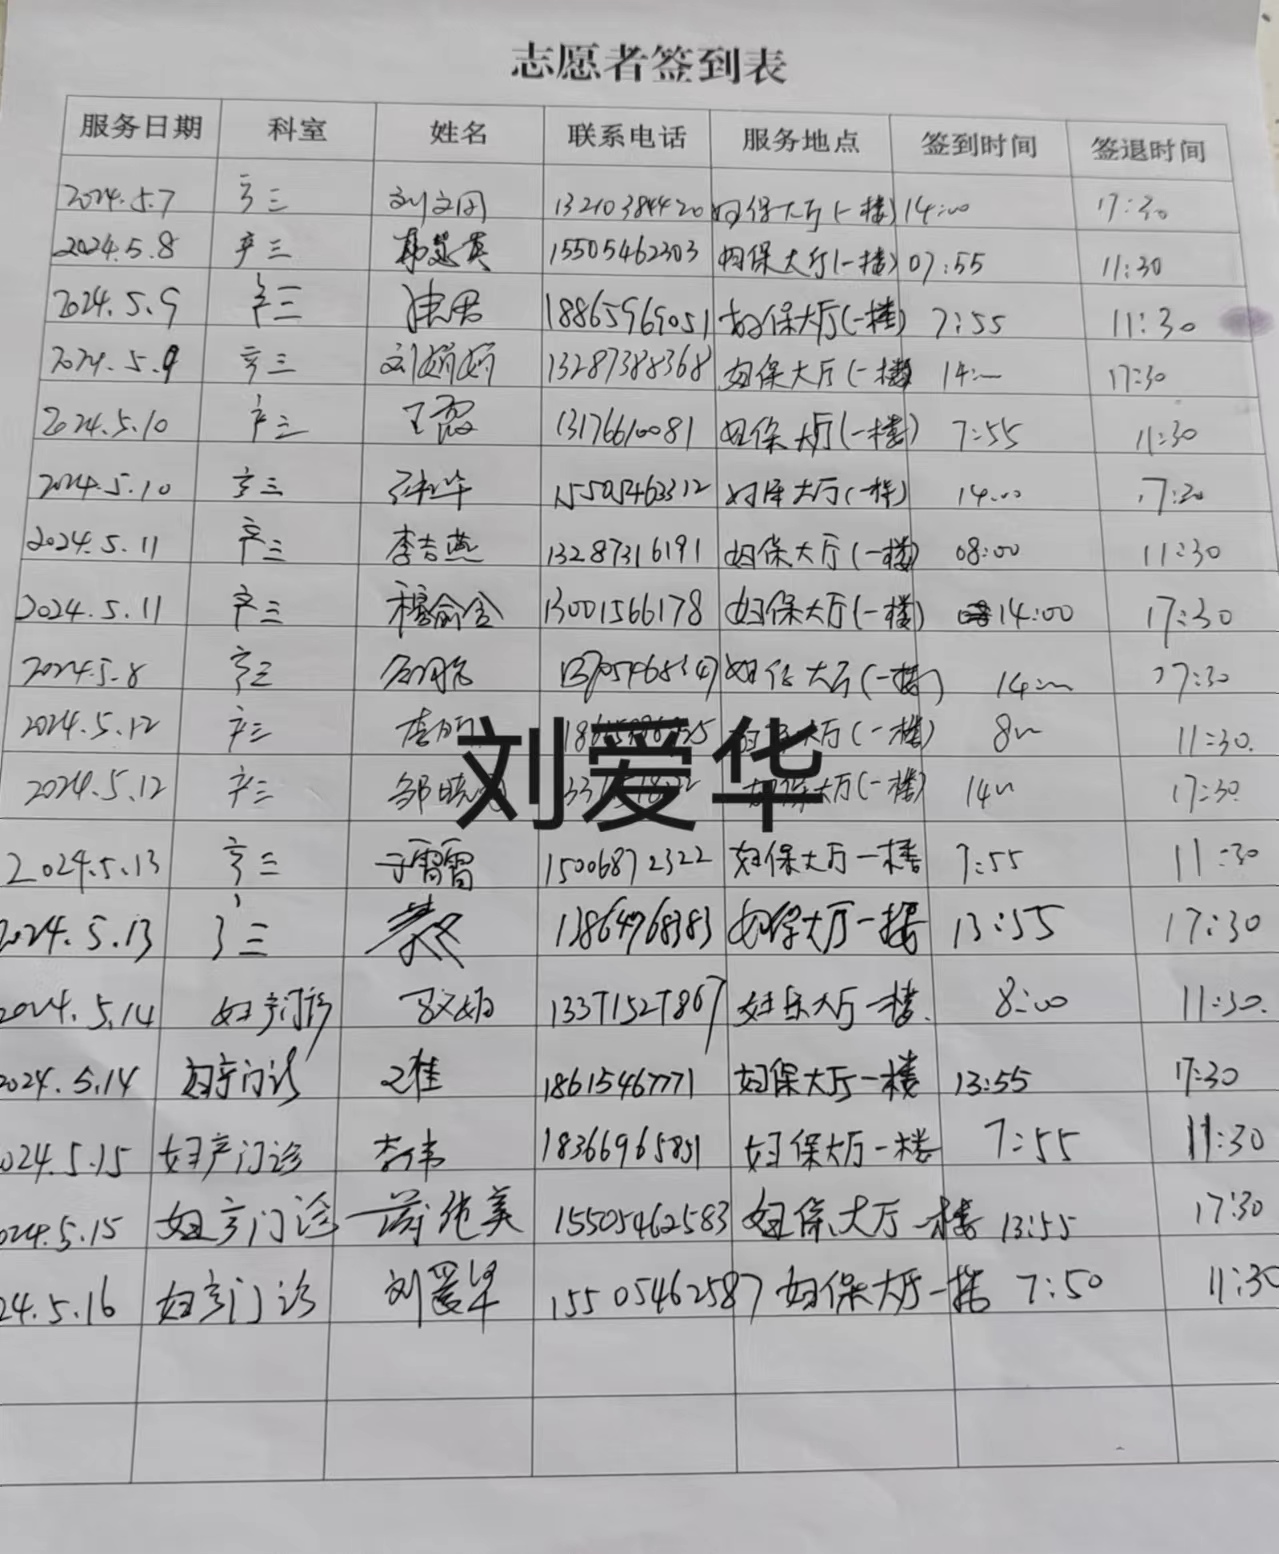 志愿者签到表
服务日期 科室 姓名 联系电话 服务地点 签到时间 签退时间
2024.5.7 产三 刘文团 13210384420 妇保大厅(一楼) 14:00 17:30
2024.5.8 产三 15505462303 妇保大厅(一楼) 07:55 11:30
2024.5.9 产三 18865969051 妇保大厅(一楼) 7:55 11:30
2024.5.9 产三 刘娟娟 13287388368 妇保大厅(一楼 14:00 17:30
2024.5.10 产三 王霞 13176610081 妇保大厅(一楼) 7:55 11:30
2024.5.10 产三 15505463312 妇保大厅(一楼) 14:00 17:30
2024.5.11 产三 李吉燕 13287316191 妇保大厅(一楼) 08:00 11:30
2024.5.11 产三 穆俞含 13001566178 妇保大厅(一楼) 14:00 17:30
2024.5.8 产三 妇保大厅(一楼) 14:00 17:30
2024.5.12 产三 大厅(一楼) 8:00 11:30.
2024.5.12 产三 邹晓 妇保大厅(一楼) 14:00 17:30
刘爱华
2024.5.13 产三 于雷雷 15006872322 妇保大厅一楼 7:55 11:30
2024.5.13 产三 13864768383 妇保大厅一楼 13:55 17:30
2024.5.14 妇产门诊 13371527867 妇保大厅一楼. 8:00 11:30.
2024.5.14 妇产门诊 18615467771 妇保大厅一楼 13:55 17:30
024.5.15 妇产门诊 李伟 18366965831 妇保大厅一楼 7:55 11:30
024.5.15 妇产门诊 15505462583 妇保大厅一楼 13:55 17:30
24.5.16 妇产门诊 刘爱华 15505462587 妇保大厅一楼 7:50 11:30